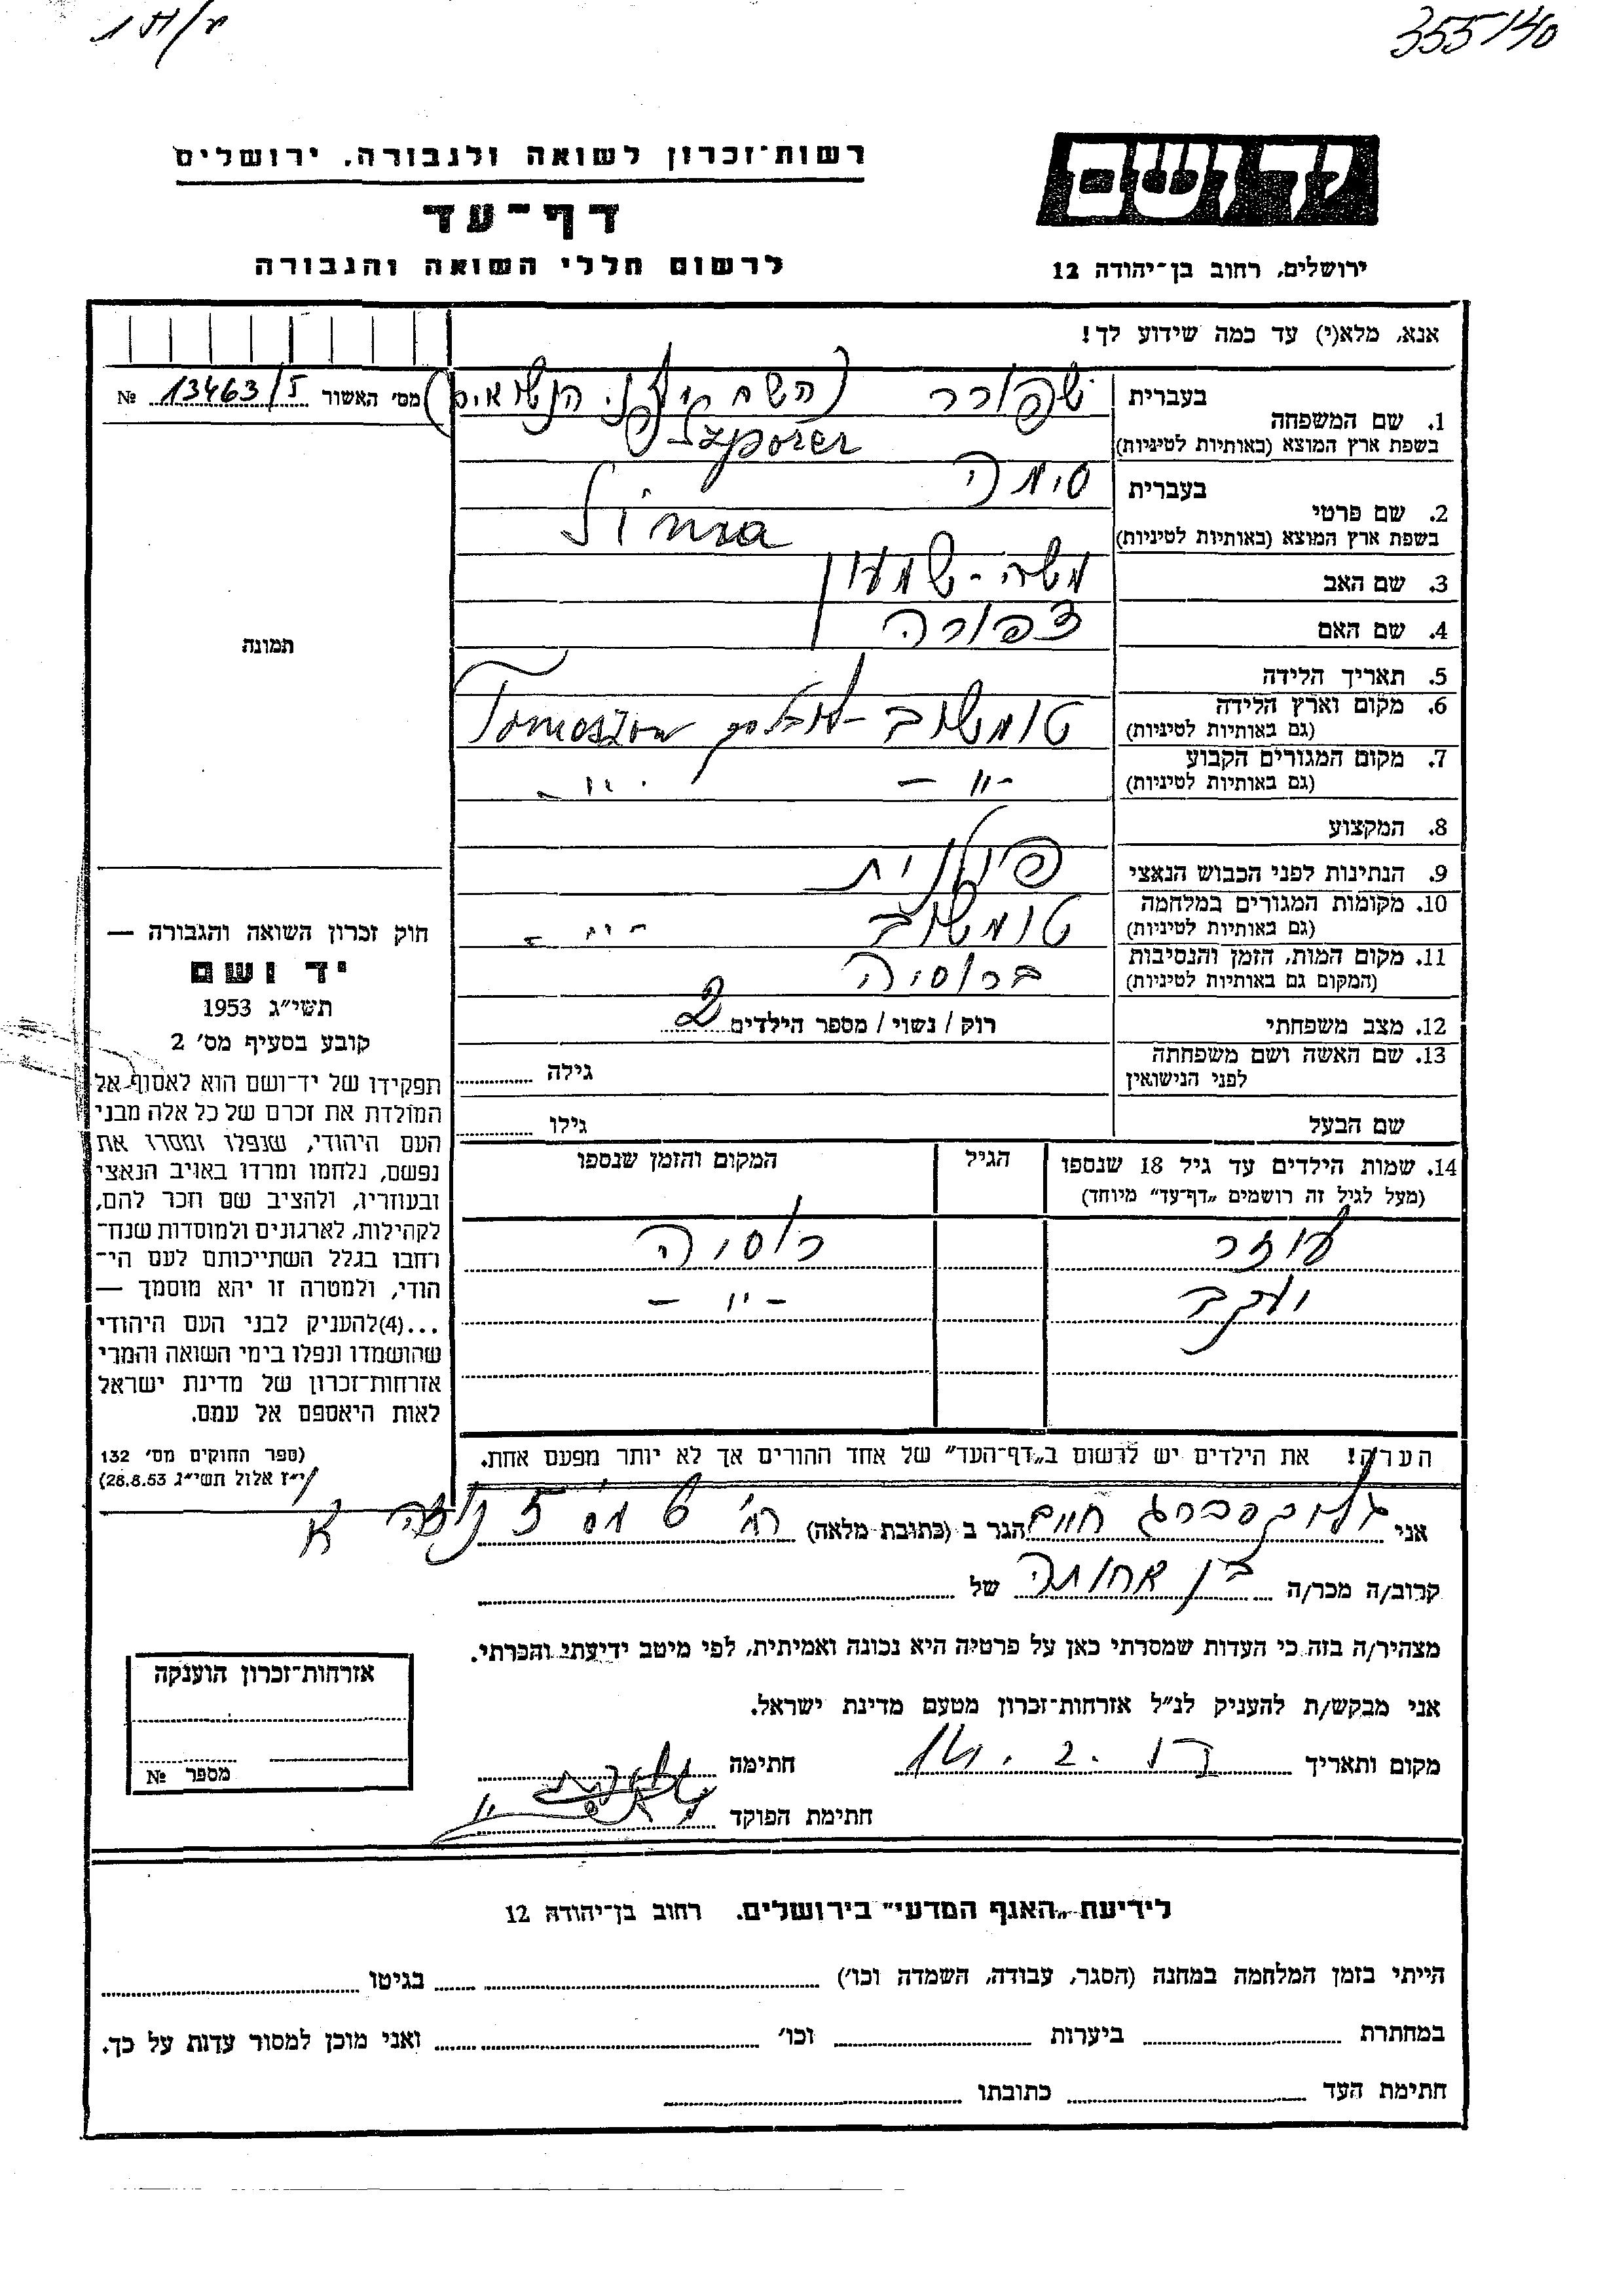 355/40
רשות־זכרון לשואה ולגבורה, ירושלים
דף־עד
לרשום חללי השואה והגבורה
יד ושם
ירושלים, רחוב בן־יהודה 12
אנא, מלא(י) עד כמה שידוע לך!
מס׳ האשור 13463/5 №
1. שם המשפחה בעברית שפורר (השם לפני הנשואים)
בשפת ארץ המוצא (באותיות לטיניות) Szporer
2. שם פרטי בעברית סימה
בשפת ארץ המוצא (באותיות לטיניות) Sima
3. שם האב משה - שמעון
4. שם האם צפורה
5. תאריך הלידה
6. מקום וארץ הלידה טומשוב - לובלסקי Tomaszow
(גם באותיות לטיניות)
7. מקום המגורים הקבוע - וו - - וו -
(גם באותיות לטיניות)
8. המקצוע
9. הנתינות לפני הכבוש הנאצי פולנית
10. מקומות המגורים במלחמה טומשוב - וו -
(גם באותיות לטיניות)
11. מקום המות, הזמן והנסיבות ברוסיה
(המקום גם באותיות לטיניות)
12. מצב משפחתי רוק / נשוי / מספר הילדים 2
13. שם האשה ושם משפחתה גילה
לפני הנישואין
שם הבעל גילו
14. שמות הילדים עד גיל 18 שנספו הגיל המקום והזמן שנספו
(מעל לגיל זה רושמים „דף־עד” מיוחד)
עוזר רוסיה
יעקב - וו -
הערה! את הילדים יש לרשום ב„דף־העד” של אחד ההורים אך לא יותר מפעם אחת.
תמונה
חוק זכרון השואה והגבורה —
יד ושם
תשי״ג 1953
קובע בסעיף מס׳ 2
תפקידו של יד־ושם הוא לאסוף אל
המולדת את זכרם של כל אלה מבני
העם היהודי, שנפלו ומסרו את
נפשם, נלחמו ומרדו באויב הנאצי
ובעוזריו, ולהציב שם וזכר להם,
לקהילות, לארגונים ולמוסדות שנח־
רחבו בגלל השתייכותם לעם הי־
הודי, ולמטרה זו יהא מוסמך —
...(4)להעניק לבני העם היהודי
שהושמדו ונפלו בימי השואה והמרי
אזרחות־זכרון של מדינת ישראל
לאות היאספם אל עמם.
(ספר החוקים מס׳ 132
י״ז אלול תשי״ג 28.8.53)
אני חיים הגר ב (כתובת מלאה) רח׳
קרוב/ה מכר/ה בן אחותה של
מצהיר/ה בזה כי העדות שמסרתי כאן על פרטיה היא נכונה ואמיתית, לפי מיטב ידיעתי והכרתי.
אני מבקש/ת להעניק לנ״ל אזרחות־זכרון מטעם מדינת ישראל.
מקום ותאריך חתימה
חתימת הפוקד
אזרחות־זכרון הוענקה
מספר №
לידיעת „האגף המדעי” בירושלים. רחוב בן־יהודה 12
הייתי בזמן המלחמה במחנה (הסגר, עבודה, השמדה וכו׳) בגיטו
במחתרת ביערות וכו׳ ואני מוכן למסור עדות על כך.
חתימת העד כתובתו